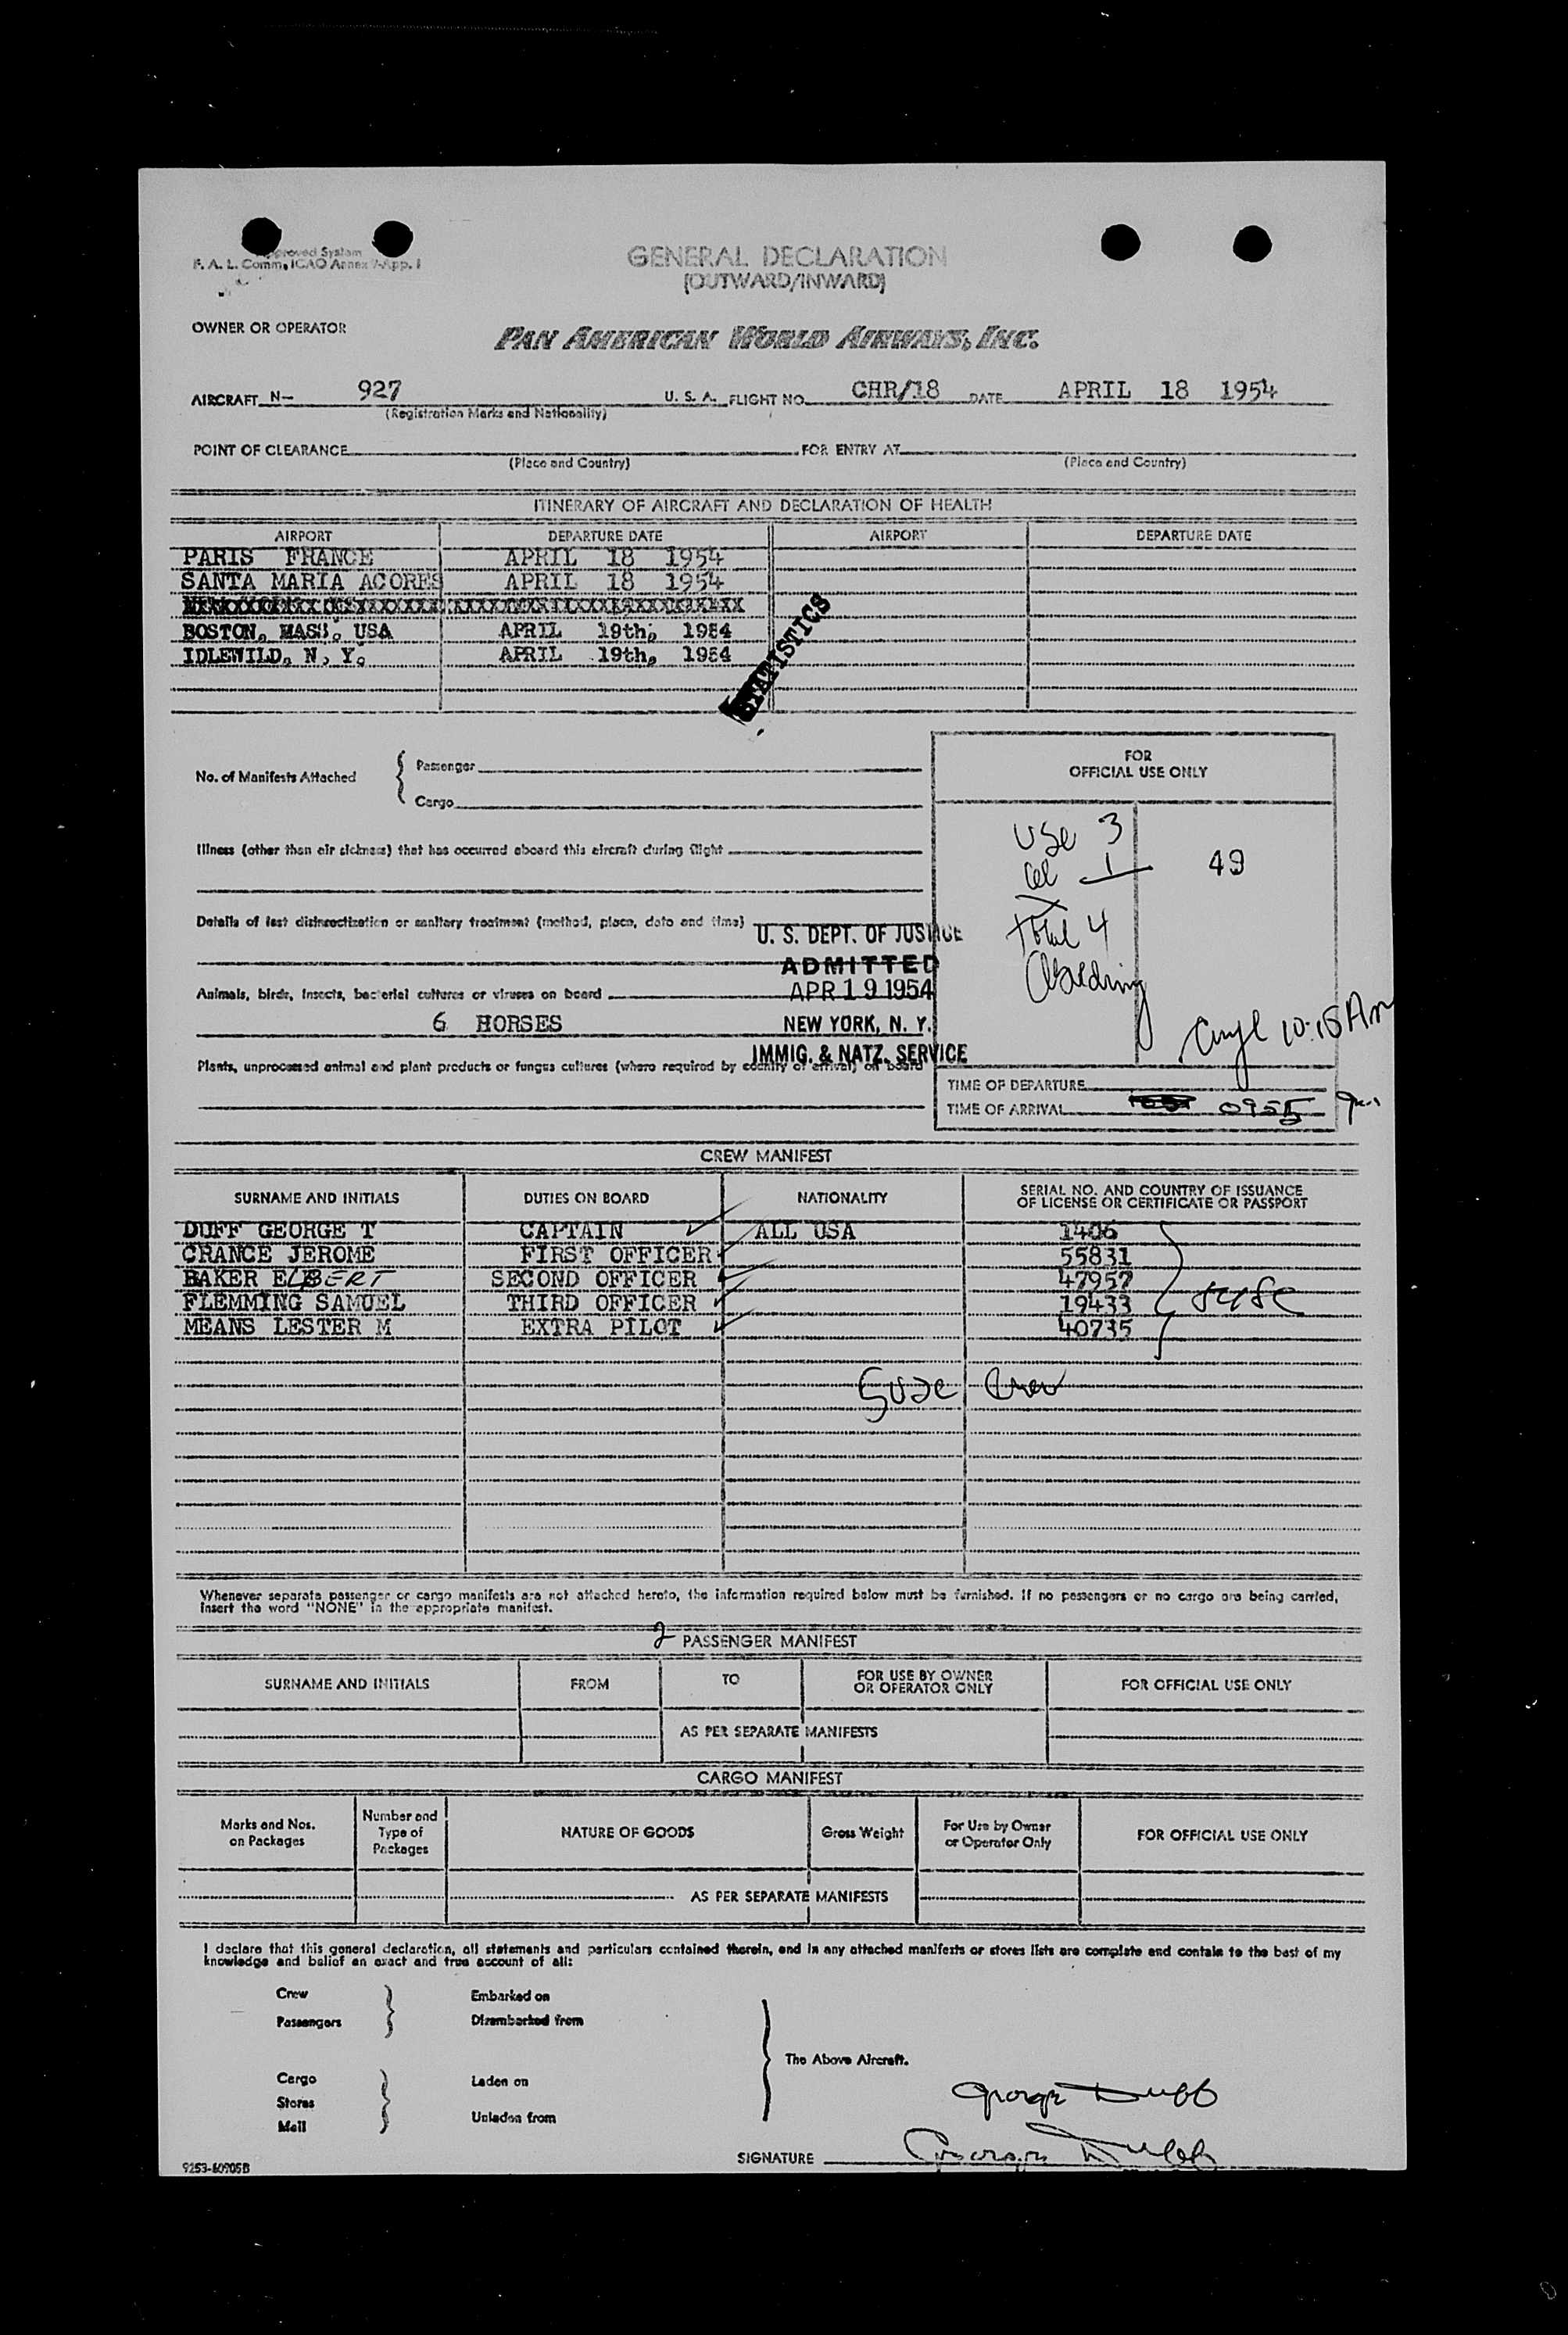 proved System
F. A. L. Comm, ICAO Annex 9-App. I
GENERAL DECLARATION
(OUTWARD/INWARD)
OWNER OR OPERATOR
PAN AMERICAN WORLD AIRWAYS, INC.
AIRCRAFT N- 927 U. S. A. FLIGHT NO. CHR/18 DATE APRIL 18 1954
(Registration Marks and Nationality)
POINT OF CLEARANCE FOR ENTRY AT
(Place and Country) (Place and Country)
ITINERARY OF AIRCRAFT AND DECLARATION OF HEALTH
AIRPORT DEPARTURE DATE AIRPORT DEPARTURE DATE
PARIS FRANCE APRIL 18 1954
SANTA MARIA ACORES APRIL 18 1954
BOSTON, MASS. USA APRIL 19th, 1954
IDLEWILD, N, Y. APRIL 19th, 1954
STATISTICS
No. of Manifests Attached { Passenger
Cargo
FOR
OFFICIAL USE ONLY
Illness (other than air sickness) that has occurred aboard this aircraft during flight
USc 3
1
49
total 4
Details of last disinsectization or sanitary treatment (method, place, date and time)
U. S. DEPT. OF JUSTICE
ADMITTED
Animals, birds, insects, bacterial cultures or viruses on board
APR 19 1954
6 HORSES
NEW YORK, N. Y.
10:15 Am
IMMIG. & NATZ. SERVICE
Plants, unprocessed animal and plant products or fungus cultures (where required by country of arrival) on board
TIME OF DEPARTURE
TIME OF ARRIVAL 0955
CREW MANIFEST
SURNAME AND INITIALS DUTIES ON BOARD NATIONALITY SERIAL NO. AND COUNTRY OF ISSUANCE
OF LICENSE OR CERTIFICATE OR PASSPORT
DUFF GEORGE T CAPTAIN ALL USA 1406
CRANCE JEROME FIRST OFFICER 55831
BAKER ELBERT SECOND OFFICER 47957
FLEMMING SAMUEL THIRD OFFICER 19433
MEANS LESTER M EXTRA PILOT 40735
5 USC Crew
Whenever separate passenger or cargo manifests are not attached hereto, the information required below must be furnished. If no passengers or no cargo are being carried,
insert the word "NONE" in the appropriate manifest.
2 PASSENGER MANIFEST
SURNAME AND INITIALS FROM TO FOR USE BY OWNER
OR OPERATOR ONLY FOR OFFICIAL USE ONLY
AS PER SEPARATE MANIFESTS
CARGO MANIFEST
Marks and Nos.
on Packages Number and
Type of
Packages NATURE OF GOODS Gross Weight For Use by Owner
or Operator Only FOR OFFICIAL USE ONLY
AS PER SEPARATE MANIFESTS
I declare that this general declaration, all statements and particulars contained therein, and in any attached manifests or stores lists are complete and contain to the best of my
knowledge and belief an exact and true account of all:
Crew Embarked on
Passengers Disembarked from
The Above Aircraft.
Cargo Laden on
Stores
Mail Unladen from
George Duff
SIGNATURE George Duff
9253-60905B